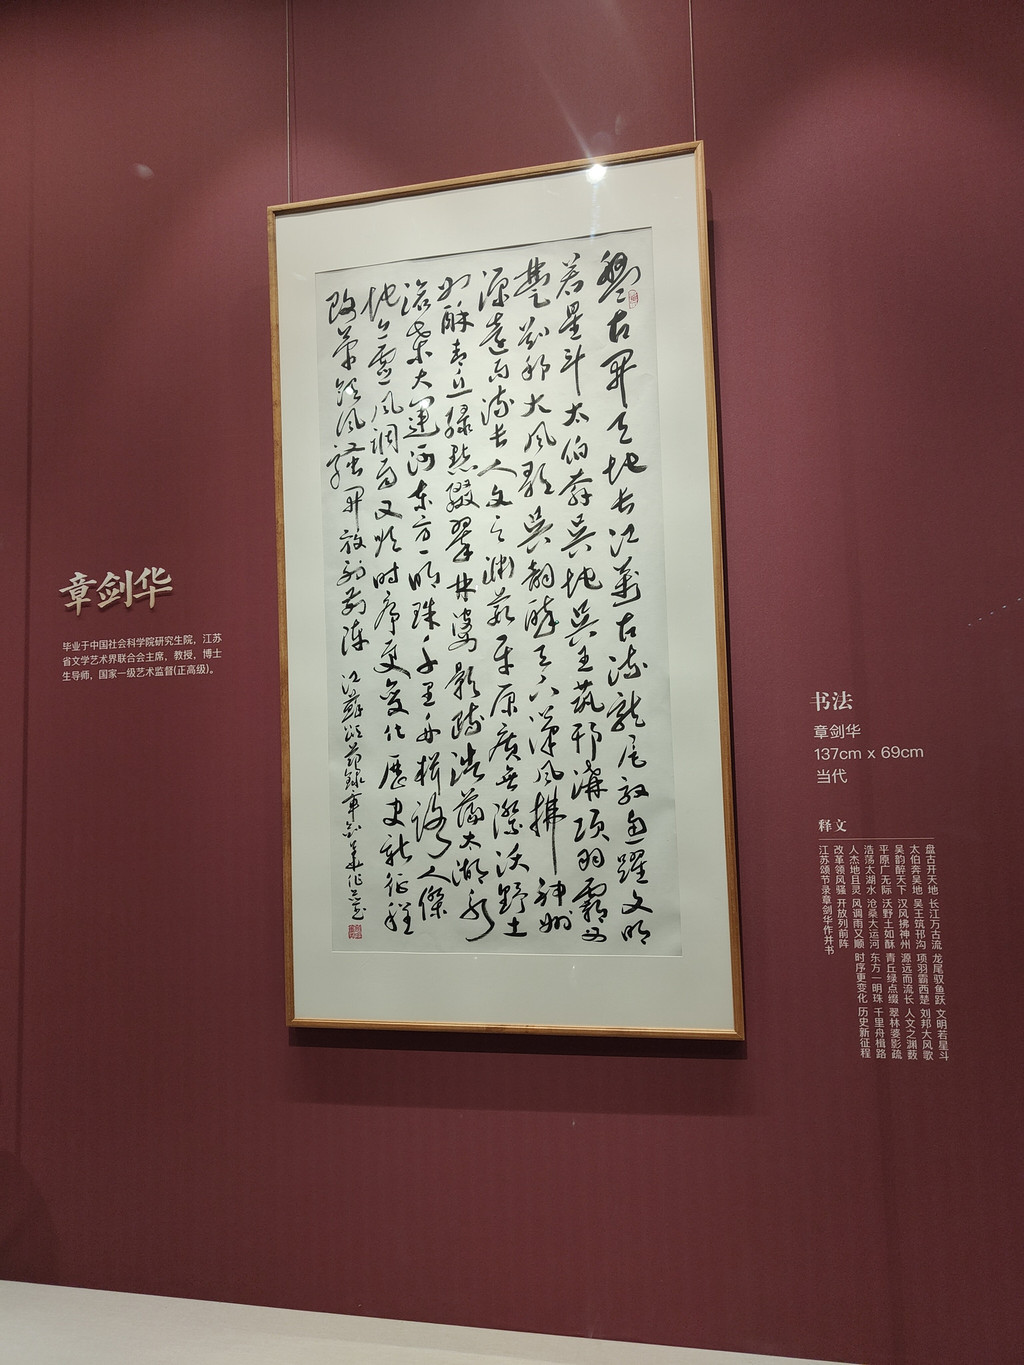 章剑华
毕业于中国社会科学院研究生院，江苏
省文学艺术界联合会主席，教授，博士
生导师，国家一级艺术监督(正高级)。
盤古開天地長江萬古流龍尾馭魚躍文明
若星斗太伯奔吳地吳王筑邗溝項羽霸西
楚劉邦大風歌吳韻醉天下漢風拂神州
源遠而流長人文之渊薮平原廣無際沃野土
如酥青丘绿點綴翠林婆影疏浩蕩太湖水
滄桑大運河東方一明珠千里舟楫路人傑
地且靈風調雨又順時序更變化歷史新征程
改革領風騷開放列前陣 江蘇頌節録章剑華作并書
书法
章剑华
137cm x 69cm
当代
释文
盘古开天地 长江万古流 龙尾驭鱼跃 文明若星斗
太伯奔吴地 吴王筑邗沟 项羽霸西楚 刘邦大风歌
吴韵醉天下 汉风拂神州 源远而流长 人文之渊薮
平原广无际 沃野土如酥 青丘绿点缀 翠林婆影疏
浩荡太湖水 沧桑大运河 东方一明珠 千里舟楫路
人杰地且灵 风调雨又顺 时序更变化 历史新征程
改革领风骚 开放列前阵
江苏颂节录章剑华作并书